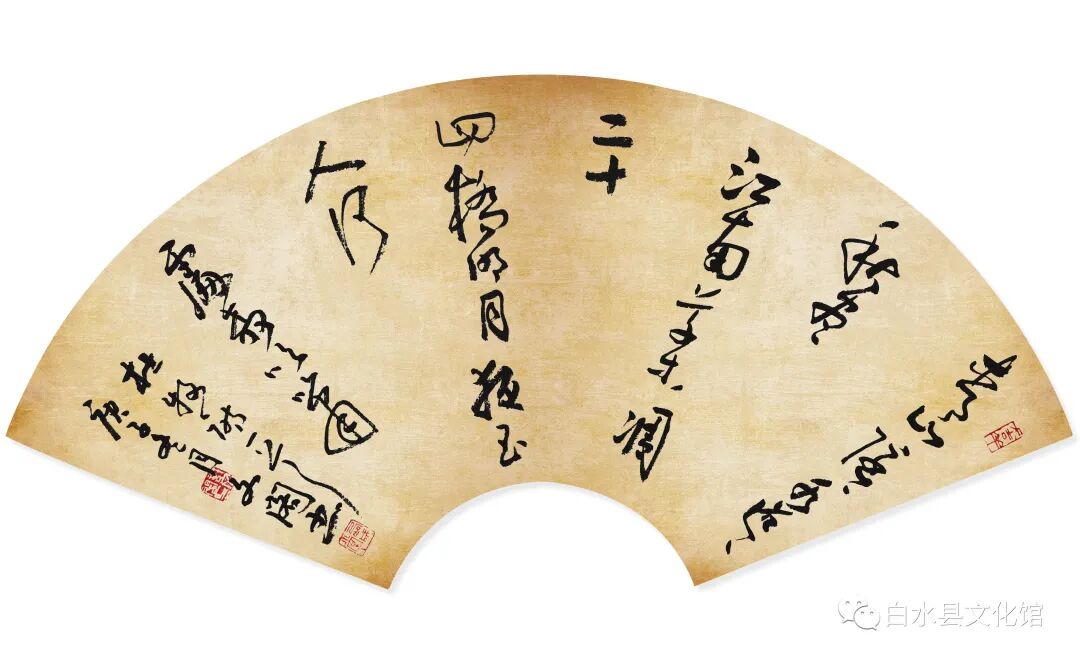 青山隐隐水迢迢
秋尽
江南草未凋
二十
四橋明月夜玉
人何
處教吹箫
杜牧诗
庚子
白水县文化馆